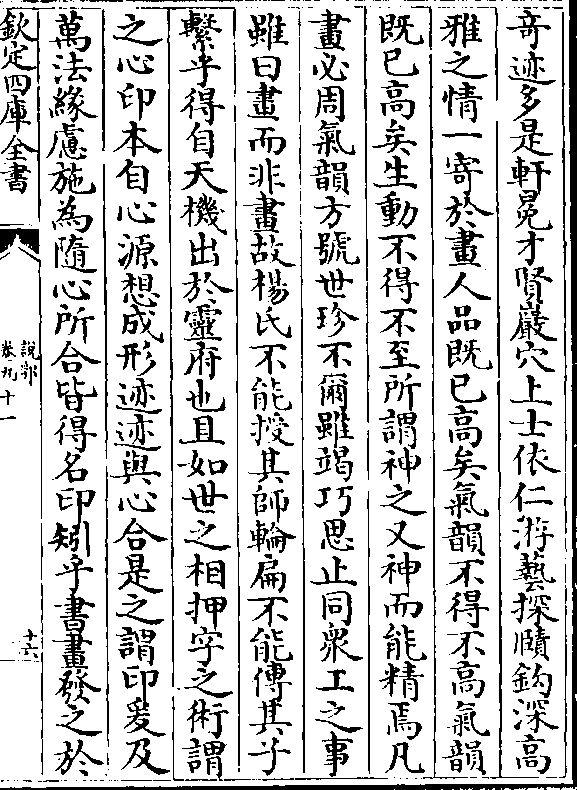 奇迹多是軒冕才賢巖穴上士依仁游藝探賾鈎深高
雅之情一寄於畫人品既已高矣氣韻不得不高氣韻
既已高矣生動不得不至所謂神之又神而能精焉凡
畫必周氣韻方號世珍不爾雖竭巧思止同衆工之事
雖曰畫而非畫故楊氏不能授其師輪扁不能傳其子
繫乎得自天機出於靈府也且如世之相押字之術謂
之心印本自心源想成形迹迹與心合是之謂印爰及
萬法緣慮施為隨心所合皆得名印矧乎書畫發之於
欽定四庫全書
說郛
卷九十一
十六